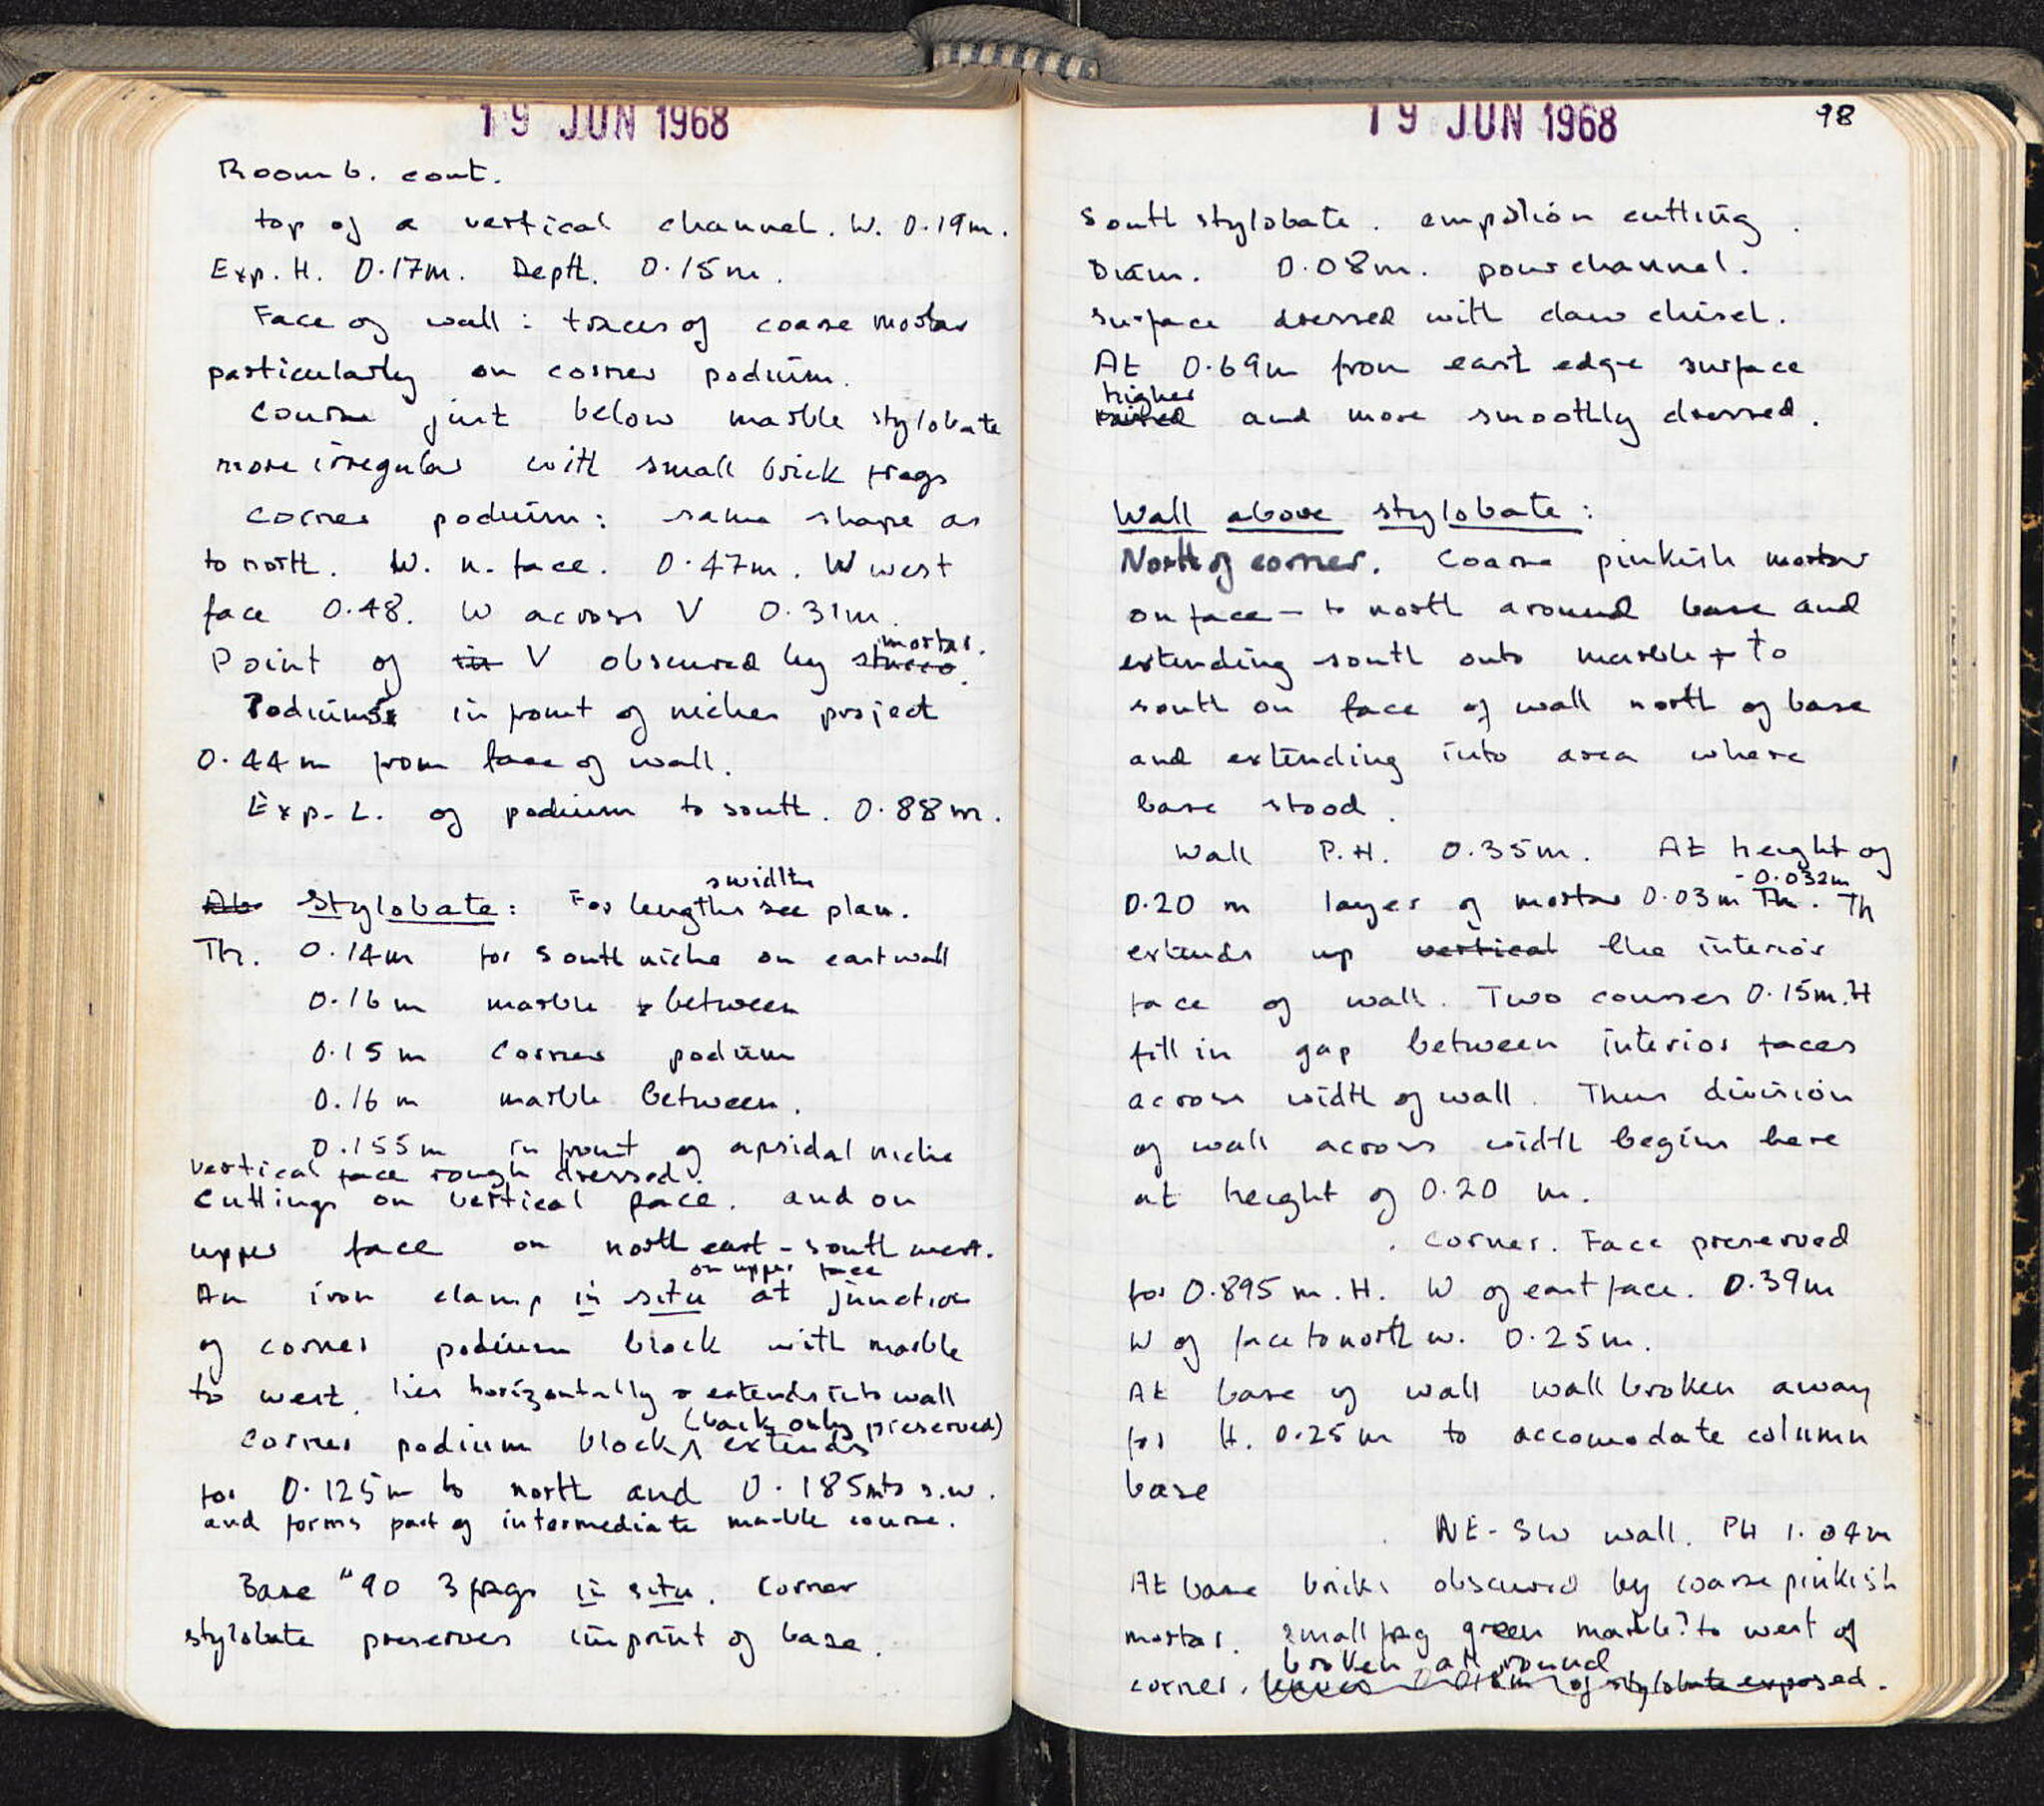 19 JUN 1968
Room 6. cont.
top of a vertical channel. W. 0.19m.
Exp. H. 0.17m. Depth. 0.15m.
Face of wall: traces of coarse mortar
particularly on corner podium.
Course just below marble stylobate
more irregular with small brick frags
Corner podium: same shape as
to north. W. n. face. 0.47m. W west
face 0.48. W across V 0.31m.
mortar.
Point of in V obscured by stucco.
Podiums in front of niches project
0.44m from face of wall.
Exp. L. of podium to south. 0.88m.
s width
Ab Stylobate: For lengths see plan.
Th. 0.14m for south niche on east wall
0.16m marble between
0.15m corner podium
0.16m marble between.
0.155m in front of apsidal niche
vertical face rough dressed.
Cuttings on vertical face. and on
upper face on north east - south west.
on upper face
An iron clamp in situ at junction
of corner podium block with marble
to west. lies horizontally & extends into wall
(back only preserved)
Corner podium block extends
for 0.125m to north and 0.185m to s.w.
and forms part of intermediate marble course.
Base "90 3 frags in situ. Corner
stylobate preserves imprint of base.
19 JUN 1968
98
South stylobate. empolion cutting.
Diam. 0.08m. pour channel.
Surface dressed with claw chisel.
At 0.69m from east edge surface
higher
raised and more smoothly dressed.
Wall above stylobate:
North of corner. Coarse pinkish mortar
on face - to north around base and
extending south onto marble + to
south on face of wall north of base
and extending into area where
base stood.
Wall P.H. 0.35m. At height of
- 0.032m
0.20 m layer of mortar 0.03m Th. Th
extends up vertical the interior
face of wall. Two courses 0.15m.H
fill in gap between interior faces
across width of wall. Thus division
of wall across width begins here
at height of 0.20 m.
. Corner. Face preserved
for 0.895 m. H. W of east face. 0.39m
W of face to north w. 0.25m.
At base of wall wall broken away
for H. 0.25m to accomodate column
base
NE-SW wall. PH 1.04m
At base bricks obscured by coarse pinkish
mortar. Small frag green marble? to west of
broken all round
corner. of stylobate exposed.